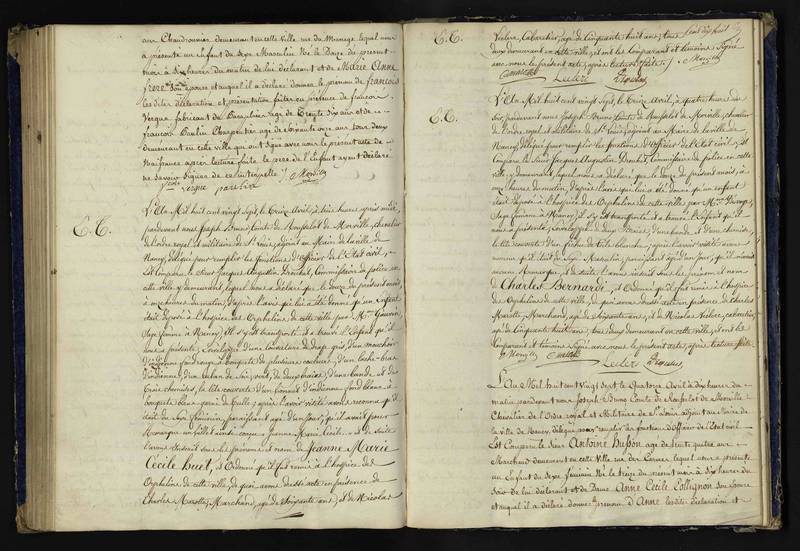 aux Chaudronnier demeurant en cette ville rue du Manege lequel nous
a présenté un Enfant du sexe Masculin Né le Douze du présent
mois à six heures du matin de lui déclarant et de Marie Anne
frere son épouse et auquel il a déclaré donner le prénom de francois
les dites déclaration et présentation faites en présence de francois
Vergue fabricant de age de Trente six ans et de
francois Paulin Charpentier age de soixante onze ans tous deux
demeurant en cette ville qui ont signé avec nous le présent acte de
Naissance après lecture faite le pere de l'Enfant ayant déclaré
ne savoir signer de ce interpellé
vergue paulin Morville
E.C.
L'An Mil huit cent vingt sept, le Treize Avril, à trois heures après midi,
pardevant nous Joseph Bruno Comte de Rousselot de Morville, chevalier
de l'ordre royal et militaire de St Louis, adjoint au Maire de la ville de
Nancy, délégué pour remplir les fonctions d'Officier de l'Etat civil,
Est Comparu le Sieur Jacques Augustin Drouhet, Commissaire de police en
cette ville y demeurant, lequel nous a déclaré que le Douze du présent mois,
à onze heures du matin, d'après l'avis qui lui a été donné qu'un Enfant
était Exposé à l'hospice des Orphelins de cette ville, par Mme
Sage femme à Nancy, Il s'y est transporté et a trouvé l'Enfant qu'il
nous a présenté, Enveloppé d'une Couverture de drap gris, d'un mouchoir
fond rouge à bouquets de plusieurs couleurs, d'un cache-bras
d'indienne, d'un ruban de soie, vert, de deux braies, d'une bande et de
trois chemises, la tête couverte d'un bonnet d'indienne fond blanc à
bouquets bleus garni de tulle; après l'avoir visité avons reconnu qu'il
était du sexe féminin, paraissant agé d'un jour, qu'il avait pour
Remarque un billet ainsi conçu: Jeanne Marie Cecile, et de suite
l'avons inscrit sous les prénoms et nom de Jeanne Marie
Cecile Huet, et Ordonné qu'il fut remis à l'hospice des
Orphelins de cette ville, de quoi avons dressé acte en présence de
Charles Marotte, Marchand, agé de Soixante ans, et de Nicolas
E.C.
Leclere, Cabaretier, agé de Cinquante huit ans, tous
deux demeurant en cette ville, et ont les Comparant et témoins Signé
avec nous le présent acte, après lecture faite. Morville
Leclere
E.C.
L'An Mil huit cent vingt Sept, le Treize Avril, à quatre heures du
soir, pardevant nous Joseph Bruno Comte de Rousselot de Morville, chevalier
de l'ordre royal et militaire de St Louis, adjoint au Maire de la ville de
Nancy, délégué pour remplir les fonctions d'Officier de l'Etat civil, Est
Comparu le Sieur Jacques Augustin Drouhet, Commissaire de police en cette
ville y demeurant, lequel nous a déclaré que le douze du présent mois, à
onze heures du matin, d'après l'avis qui lui a été donné qu'un enfant
était exposé à l'hospice des Orphelins de cette ville, par Mme
Sage femme à Nancy, il s'y est transporté et a trouvé l'Enfant qu'il
nous a présenté, Enveloppé de deux braies, d'une bande et d'une chemise,
la tête couverte d'un fichu de toile blanche; après l'avoir visité avons
reconnu qu'il était du Sexe Masculin, paraissant agé d'un jour, qu'il n'avait
aucune Remarque, et de suite l'avons inscrit sous les prénom et nom
de Charles Bernardi, et Ordonné qu'il fut remis à l'hospice
des Orphelins de cette ville, de quoi avons dressé acte en présence de Charles
Marotte, Marchand, agé de Soixante ans, et de Nicolas Leclere, cabaretier,
agé de Cinquante huit ans, tous deux demeurant en cette ville, et ont les
Comparant et témoins Signé avec nous le présent acte, après lecture faite.
Morville
Leclere
L'an Mil huit cent vingt sept le Quatorze Avril à dix heures du
matin pardevant nous Joseph Bruno Comte de Rousselot de Morville
Chevalier de l'Ordre royal et Militaire de St Louis adjoint au Maire de
la ville de Nancy, délégué pour remplir les fonctions d'Officier de l'Etat civil
Est Comparu le Sieur Antoine Husson age de trente quatre ans
Marchand demeurant en cette Ville rue des Carmes lequel nous a présenté
un Enfant du sexe féminin Né le treize du présent mois à dix heures du
Soir de lui déclarant et de Dame Anne Cecile Collignon son épouse
et auquel il a déclaré donner le prénom d'Anne lesdite déclaration et